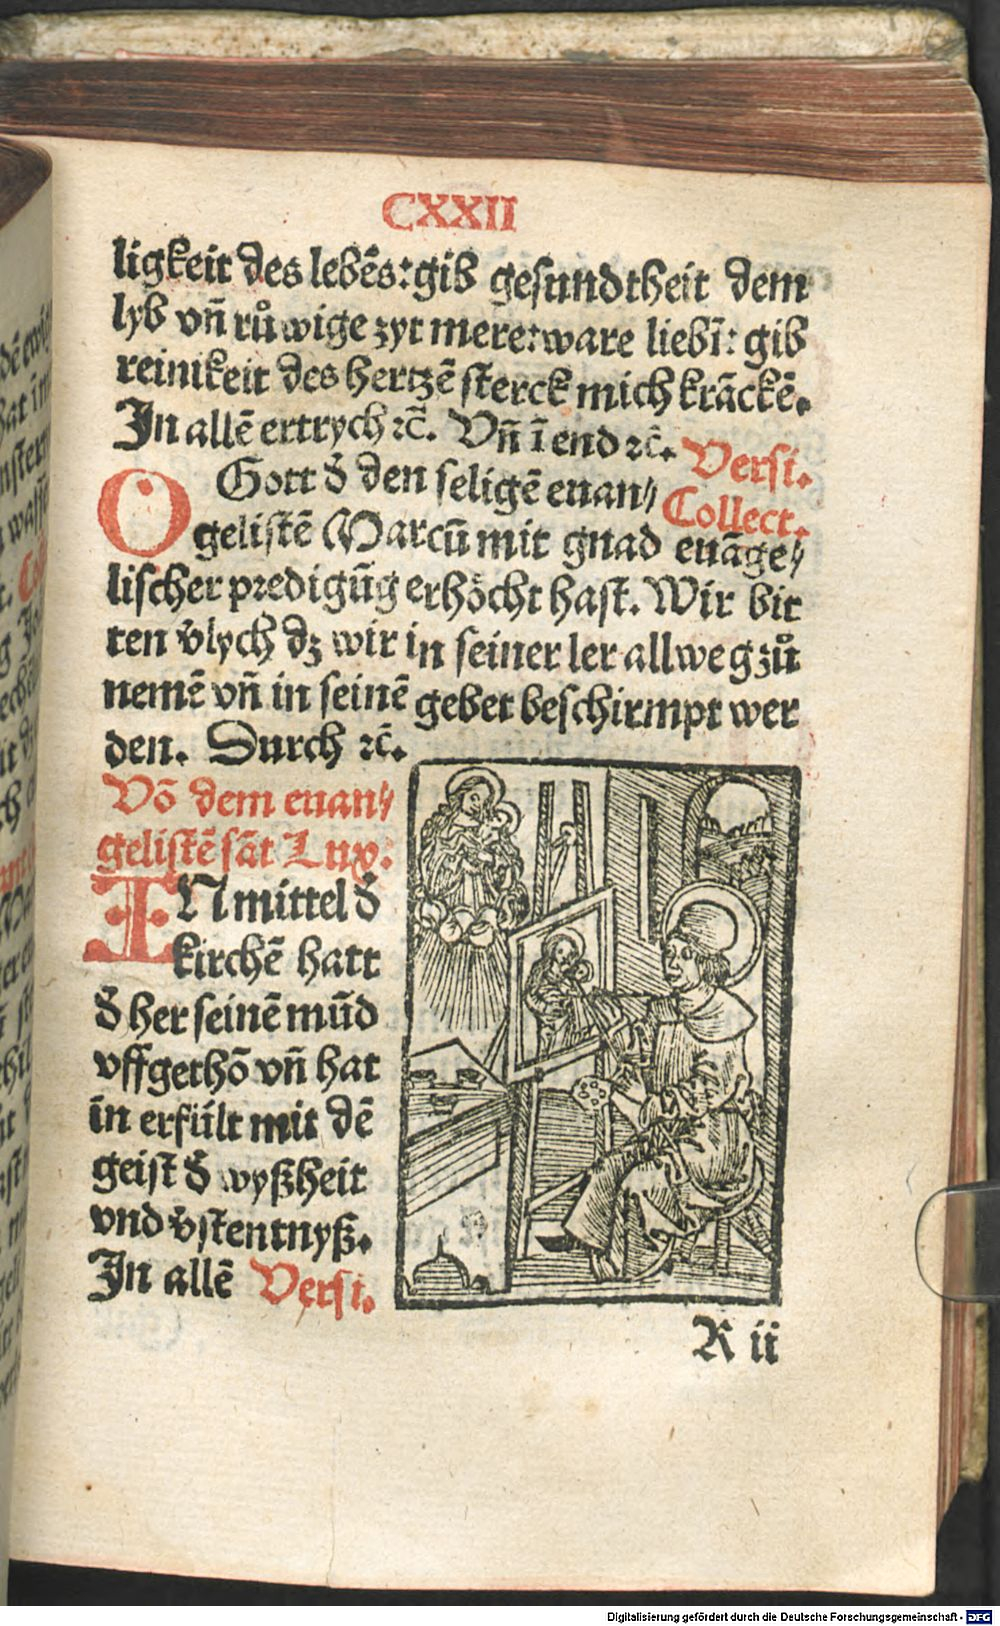 CXXII
ligkeit des lebẽs: gib gesundtheit dem
lyb vñ růwige zyt mere: ware liebī: gib
reinikeit des hertzẽ sterck mich krãckẽ.
In allẽ ertrych ⁊c̃. Vñ ī end ⁊c̃. Versi.
O Gott d̕ den seligẽ euan⸗ Collect.
gelistẽ Marcũ mit gnad euãge⸗
lischer predigũg erhöcht hast. Wir bit
ten v̕lych dz wir in seiner ler allweg zů
nemẽ vñ in seinẽ gebet beschirmpt wer
den. Durch ⁊c̃.
Võ dem euan⸗
gelistẽ sãt Lux.
IN mittel d̕
kirchẽ hatt
d̕ her seinẽ mũd
vffgethõ vñ hat
in erfült mit dẽ
geist d̕ wyßheit
vnd v̕stentnyß.
In allẽ Versi.
R ii
Digitalisierung gefördert durch die Deutsche Forschungsgemeinschaft - DFG